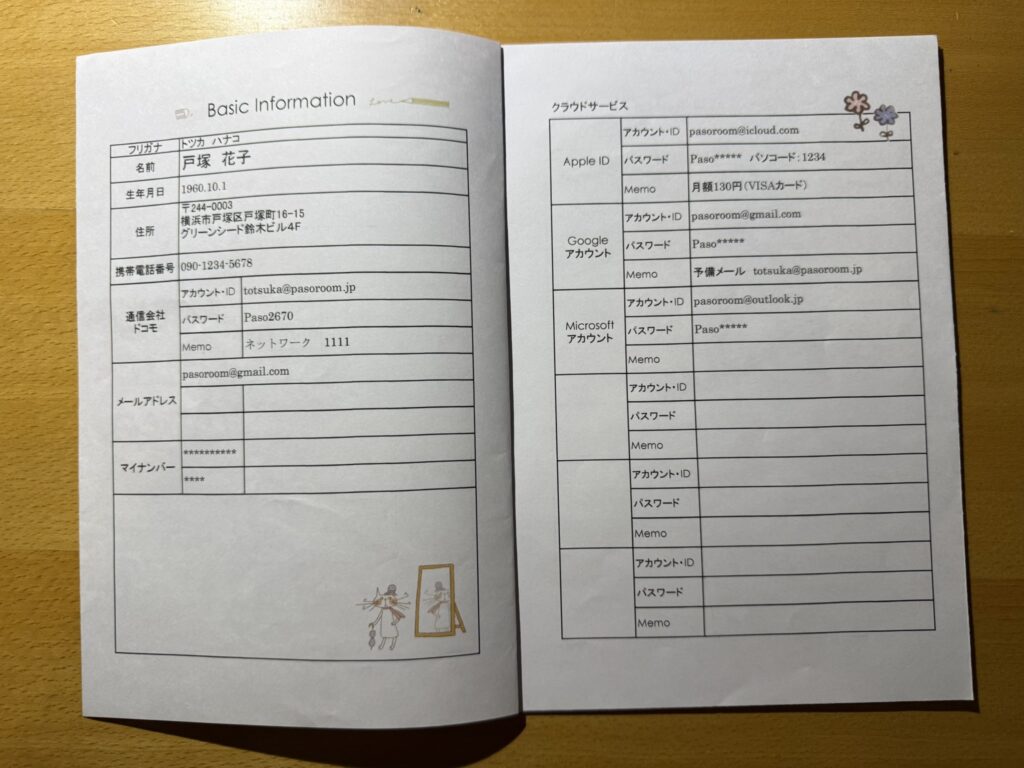 Basic Information
Love
フリガナ トツカ ハナコ
名前 戸塚 花子
生年月日 1960.10.1
住所 〒244-0003
横浜市戸塚区戸塚町16-15
グリーンシード鈴木ビル4F
携帯電話番号 090-1234-5678
通信会社
ドコモ
アカウント・ID totsuka@pasoroom.jp
パスワード Paso2670
Memo ネットワーク 1111
メールアドレス
pasoroom@gmail.com
マイナンバー
**********
****
クラウドサービス
Apple ID
アカウント・ID pasoroom@icloud.com
パスワード Paso***** パソコード:1234
Memo 月額130円(VISAカード)
Google
アカウント
アカウント・ID pasoroom@gmail.com
パスワード Paso*****
Memo 予備メール totsuka@pasoroom.jp
Microsoft
アカウント
アカウント・ID pasoroom@outlook.jp
パスワード Paso*****
Memo
アカウント・ID
パスワード
Memo
アカウント・ID
パスワード
Memo
アカウント・ID
パスワード
Memo